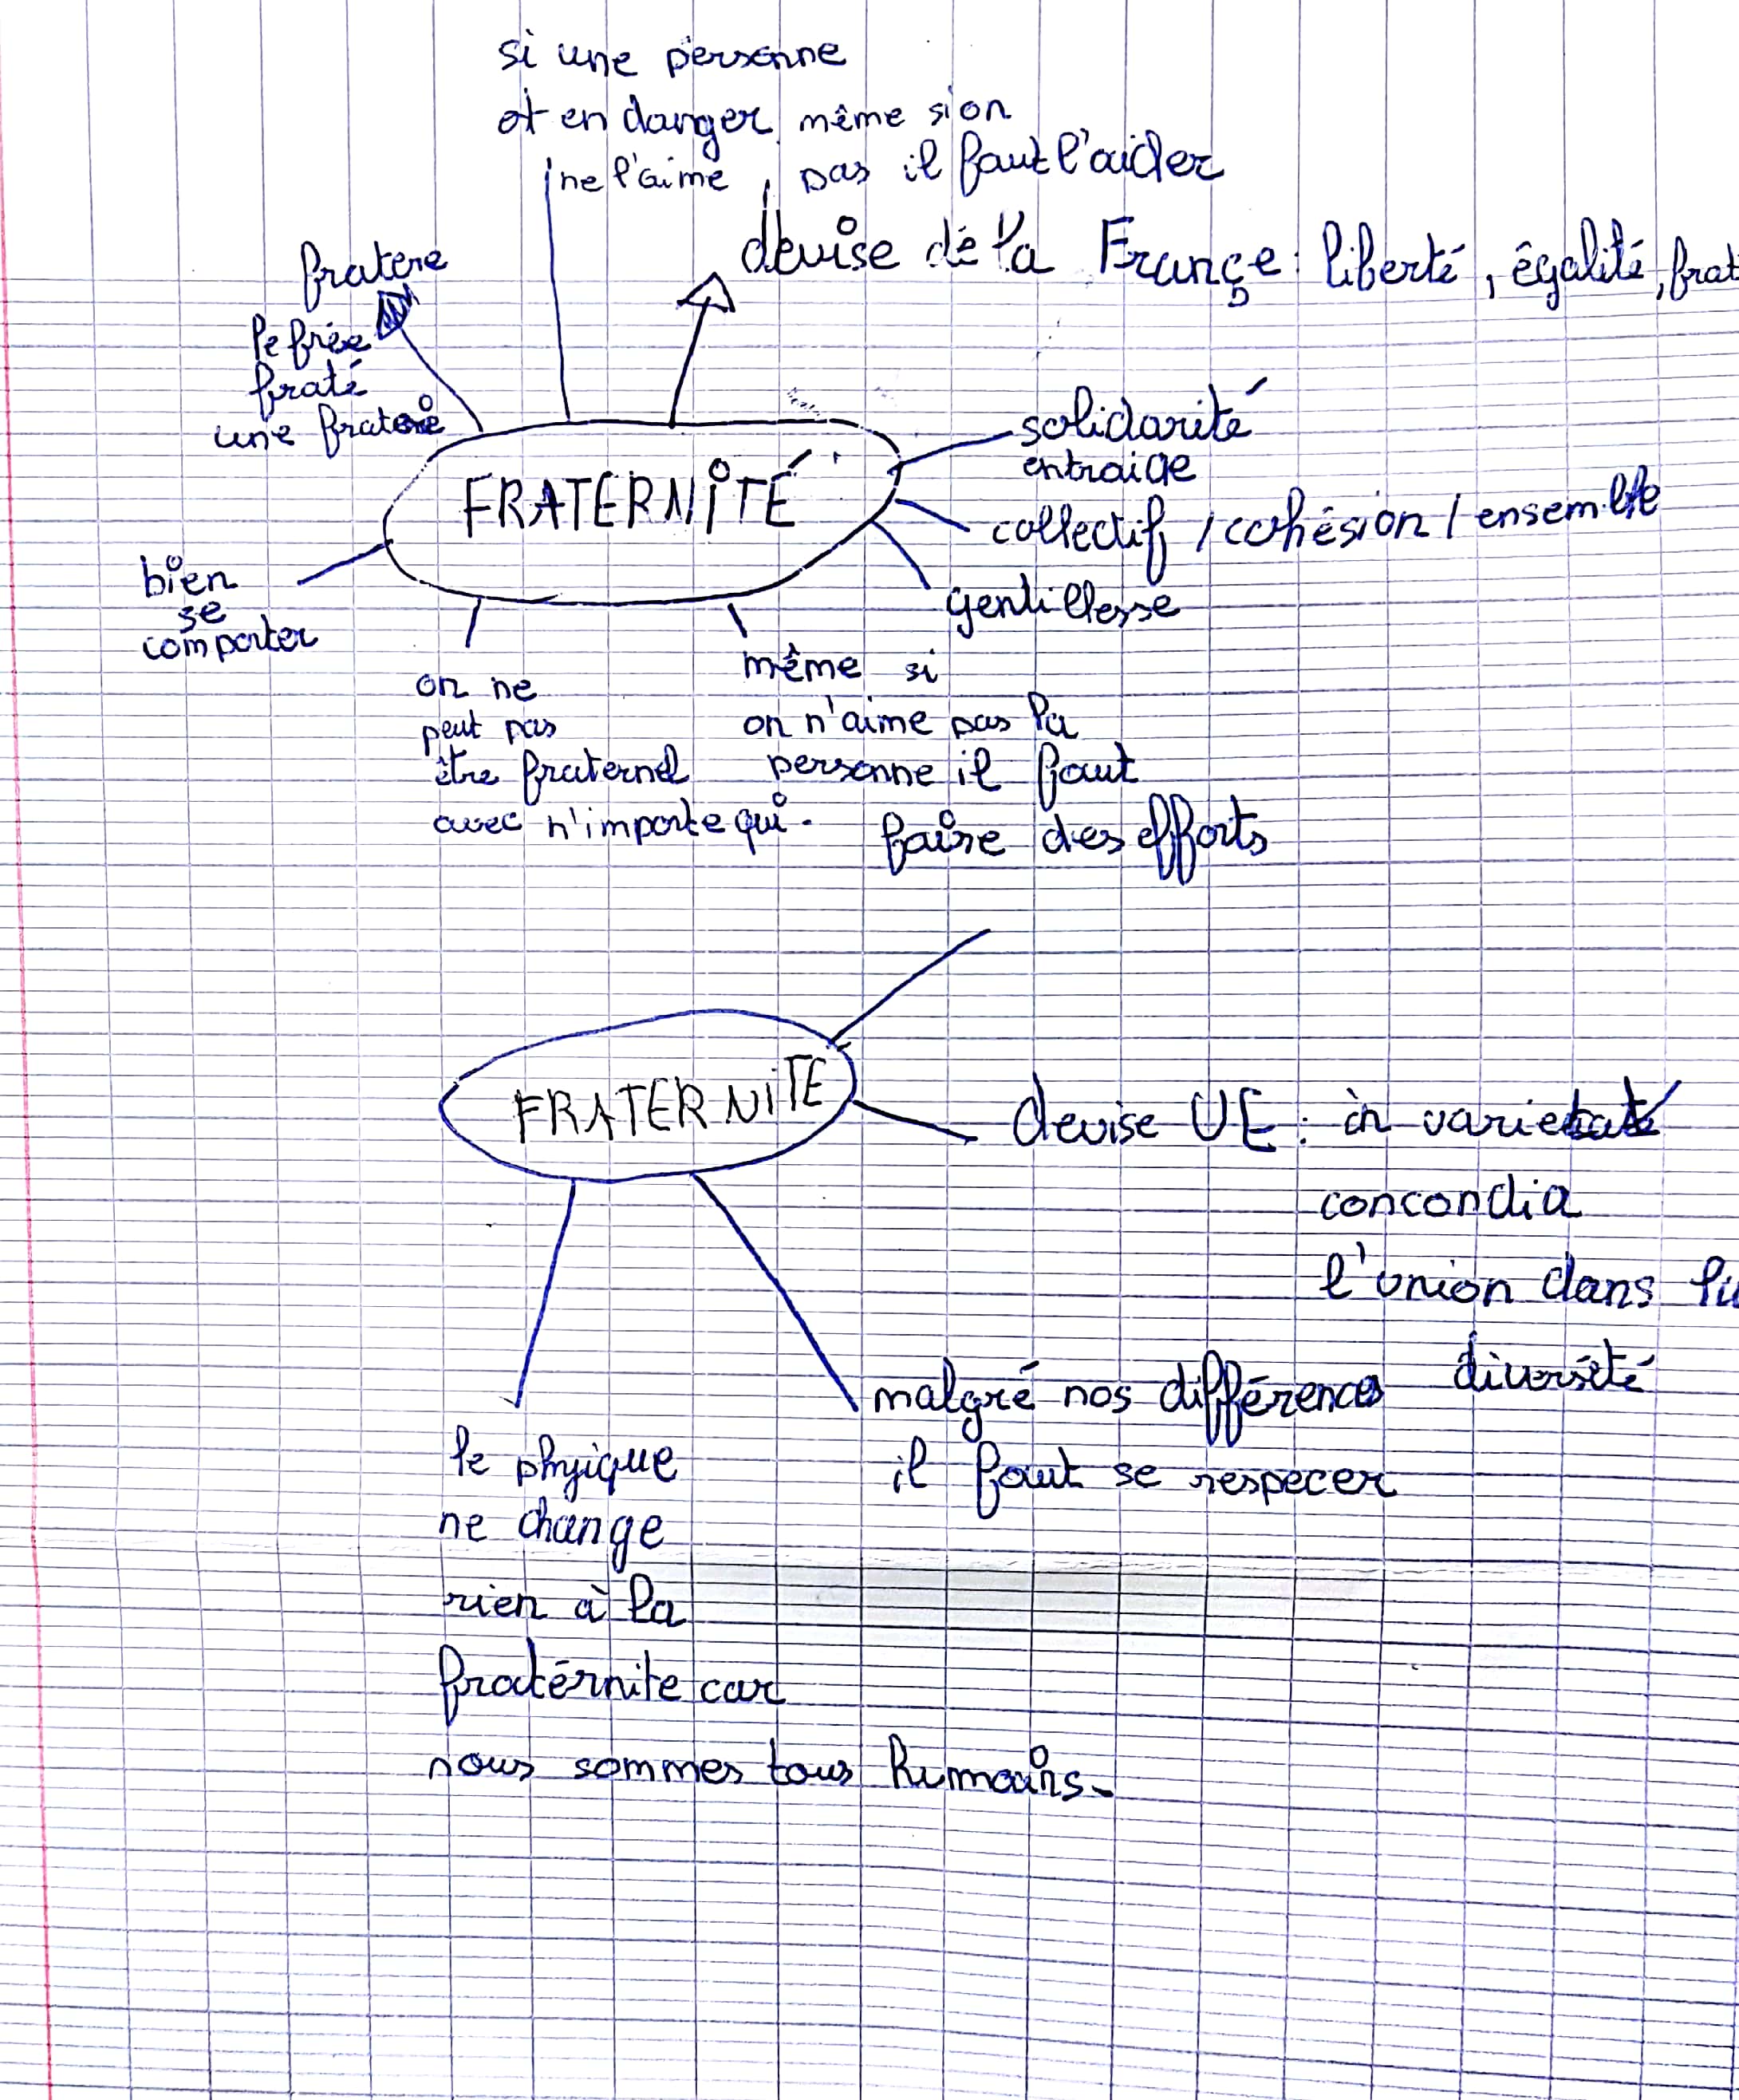 si une personne
et en danger même si on
ne l'aime pas il faut l'aider
devise de la Françe : liberté, égalité, frat
fratere
le frée
fraté
une fratere
FRATERNITÉ
solidarité
entraide
collectif / cohésion / ensemble
gentillesse
bien
se
comporter
on ne
peut pas
être fraternel
avec n'importe qui.
même si
on n'aime pas la
personne il faut
faire des efforts
FRATERNITE
devise UE : in varietate
concondia
l'union dans la
diversité
malgré nos différences
il faut se respecer
le phyique
ne change
rien à la
fratérnite car
nous sommes tous humains.